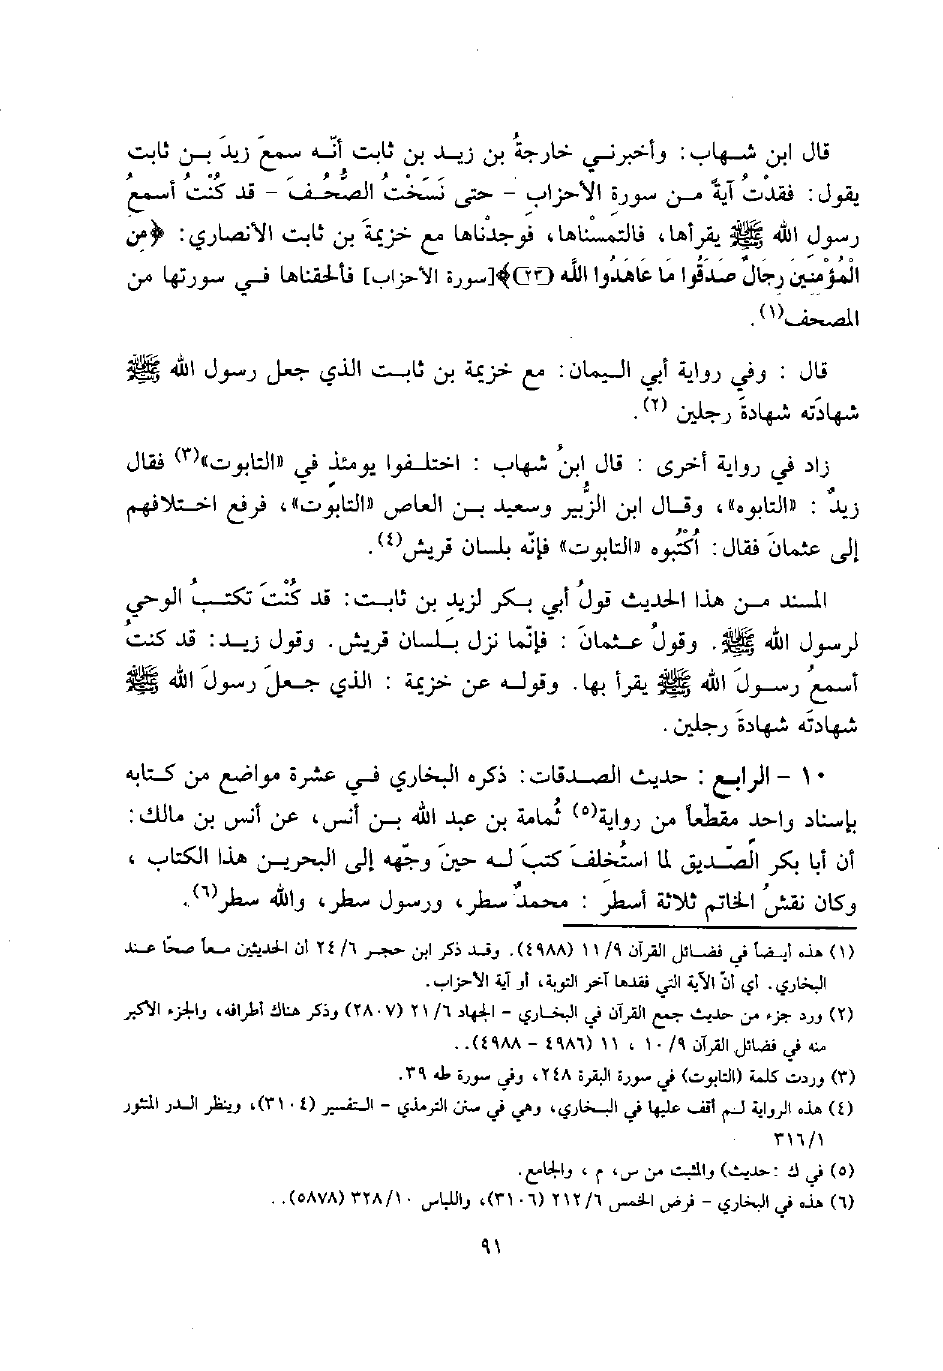 قال ابن شهاب: وأخبرني خارجةُ بن زيد بن ثابت أنّه سمعَ زيدَ بن ثابت
يقول: فقدْتُ آيةً من سورة الأحزاب - حتى نَسَخْتُ الصُّحُفَ - قد كُنْتُ أسمعُ
رسول الله ﷺ يقرأها، فالتمسْناها، فوجدْناها مع خزيمةَ بن ثابت الأنصاري: ﴿من
الْمُؤْمِنِينَ رِجَالٌ صَدَقُوا مَا عَاهَدُوا اللَّه (٢٣)﴾[سورة الأحزاب] فألحقناها في سورتها من
المصحف(١).
قال : وفي رواية أبي اليمان: مع خزيمة بن ثابت الذي جعل رسول الله ﷺ
شهادَته شهادةَ رجلين (٢).
زاد في رواية أخرى : قال ابنُ شهاب : اختلفوا يومئذٍ في «التابوت»(٣) فقال
زيدٌ : «التابوه»، وقال ابن الزُّبير وسعيد بن العاص «التابوت»، فرفع اختلافهم
إلى عثمانَ فقال: اُكْتُبوه «التابوت» فإنّه بلسان قريش(٤).
المسند من هذا الحديث قولُ أبي بكر لزيدِ بن ثابت: قد كُنْتَ تكتبُ الوحي
لرسول الله ﷺ. وقولُ عثمانَ : فإنّما نزل بلسان قريش. وقول زيد: قد كنتُ
أسمعُ رسولَ الله ﷺ يقرأ بها. وقوله عن خزيمة : الذي جعلَ رسولَ الله ﷺ
شهادتَه شهادةَ رجلين.
١٠ - الرابع : حديث الصدقات: ذكره البخاري في عشرة مواضع من كتابه
بإسناد واحد مقطّعاً من رواية(٥) ثُمامة بن عبد الله بن أنس، عن أنس بن مالك:
أن أبا بكر الصّديق لما استُخلفَ كتبَ له حينَ وجّهه إلى البحرين هذا الكتاب ،
وكان نقشُ الخاتم ثلاثةَ أسطر : محمدٌ سطر، ورسول سطر، والله سطر(٦).
(١) هذه أيضاً في فضائل القرآن ١١/٩ (٤٩٨٨). وقد ذكر ابن حجر ٢٤/٦ أن الحديثين معاً صحّا عند
البخاري. أي أنّ الآية التي فقدها آخر التوبة، أو آية الأحزاب.
(٢) ورد جزء من حديث جمع القرآن في البخاري - الجهاد ٢١/٦ (٢٨٠٧) وذكر هناك أطرافه، والجزء الأكبر
منه في فضائل القرآن ١٠/٩ ، ١١ (٤٩٨٦ - ٤٩٨٨)..
(٣) وردت كلمة (التابوت) في سورة البقرة ٢٤٨، وفي سورة طه ٣٩.
(٤) هذه الرواية لم أقف عليها في البخاري، وهي في سنن الترمذي - التفسير (٣١٠٤)، وينظر الدر المنثور
٣١٦/١
(٥) في ك :حديث) والمثبت من س، م ، والجامع.
(٦) هذه في البخاري - فرض الخمس ٢١٢/٦ (٣١٠٦)، واللباس ٣٢٨/١٠ (٥٨٧٨)..
٩١